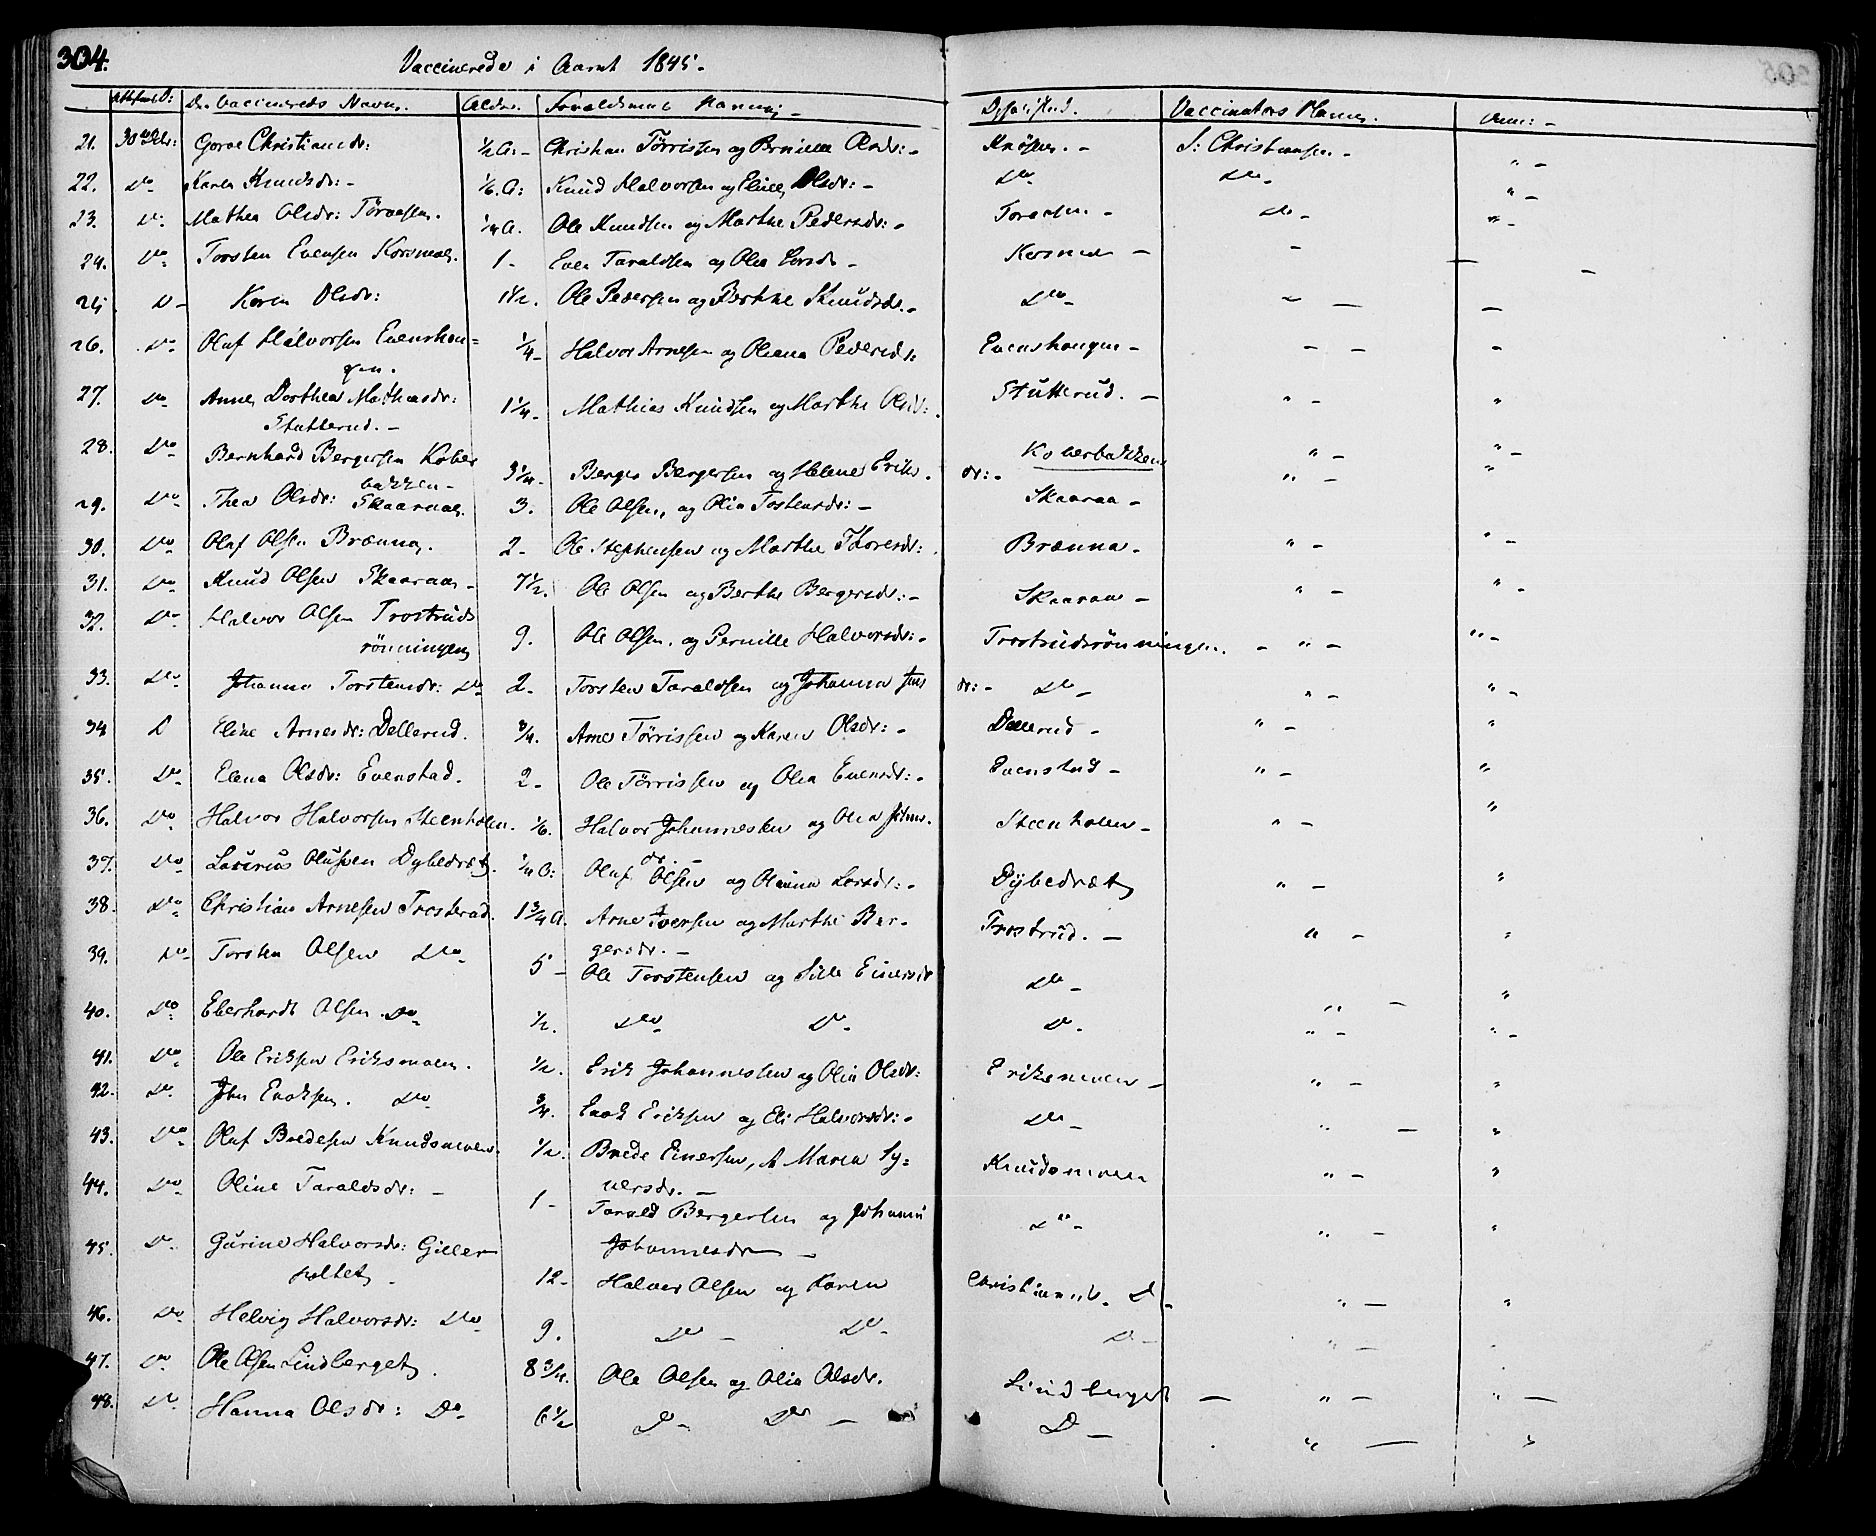 304.
Vaccinerede i Aaret 1845.
De Vaccineredes Navne. Alder. Forældrenes Navne. Opholdsted. Vaccinators Navn. Anm: -
21. 30 Christiansdr: ½ A: - Christian Törrissen og Pernille Olsdr: - S: Christiansen -
22. Do Karen Knudsdr: - 1/6. A: Knud Halvorsen og Eline Olsdr: - Do Do -
23. Do Mathea Olsdr: ¼ A. Ole Knudsen og Marthe Pedersdr: - Do -
24. Do Torsten Evensen Korsmoen. 1 - Even Taraldsen og Olea Larsdr - Korsmoen -
25. D - Karen Olsdr: 1½. Ole Pedersen og Berthe Knudsdr. - Do -
26. Do Oluf Halvorsen Evenshau=
gen. ¼ - Halvor Arnesen og Oleana Pedersdr: Evenshaugen -
27. Do Anne Dorthea Mathiasdr:
Stutterud. - 1¼ - Mathias Knudsen og Marthe Olsdr: Stutterud. - " - "
28. Do Bernhard Bergersen Kober
bakken - 3¼ - Berger Bergersen og Helene Eriks dr: - Koberbakken " - " -
29. Do Thea Olsdr: Skaaraae. 3. Ole Olsen, og Olia Tostensdr: - Skaaraa - " - "
30. Do Olaf Olsen Brænna. 2 - Ole Stephensen og Marthe Thoresdr: Brænna - " - " -
31. Do Knud Olsen Skaaraae - 7½. Ole Olsen og Berthe Bergersdr: - Skaaraae - " - " -
32. Do Halvor Olsen Trostruds
rönningen 9. Ole Olsen. og Pernille Halvorsdr: - Trostrudsrönningen. - " - " -
33. Do Johanne Torstensdr: Do 2 - Torsten Taraldsen og Johanna Jens dr: - Do - " - " -
34 D Eline Arnesdr: Dellerud. ¾. Arne Törrissen og Karen Olsdr: - Dellerud - " - "
35. Do Elena Olsdr: Evenstad. 2 - Ole Törrissen og Olea Evensdr: - Evenstad - " - "
36. Do Halvor Halvorsen Steenholen. 1/6. Halvor Johannessen og Olea Johns.
dr. - Steenholen - " - "
37. Do Laurius Olufsen Dybedræt. ¼ A: Oluf Olsen og Oleana Larsdr: - Dybedræt " - "
38. Do Christian Arnesen Trostrud. 1¾ A. Arne Iversen og Marthe Ber-
gersdr. - Trostrud. - " - "
39. Do Torsten Olsen Do 5 - Ole Torstensen og Sille Einersdr Do - " - "
40. Do Eberhardt Olsen. Do ½. Do Do D. " - " -
41. Do Ole Eriksen Eriksmoen. ½. Erik Johannessen og Olia Olsdr: Eriksmoen - " - "
42. Do John Enoksen. Do ¾. Enok Eriksen og Eli Halvorsdr: - Do - " - "
43. Do Oluf Bredesen Knudsmoen ½. Brede Einersen, A Maren Sy=
versdr. - Knudsmoen " - "
44. Do Oline Taraldsdr: - 1 - Tarald Bergersen og Johanne
Johannesdr - Do - " - "
45. Do Gurine Halvorsdr: Giller
holtet - 12 - Halvor Olsen og Karen Christiansdr. D - " - "
46. Do Helvig Halvorsdr: Do 9. Do - Do - D - " -
47. Do Ole Olsen Lindberget. 8¾. Ole Olsen og Olia Olsdr. Lindberget - " - " -
48. Do Hanna Olsdr: Do 6½ D - Do - D - " - "